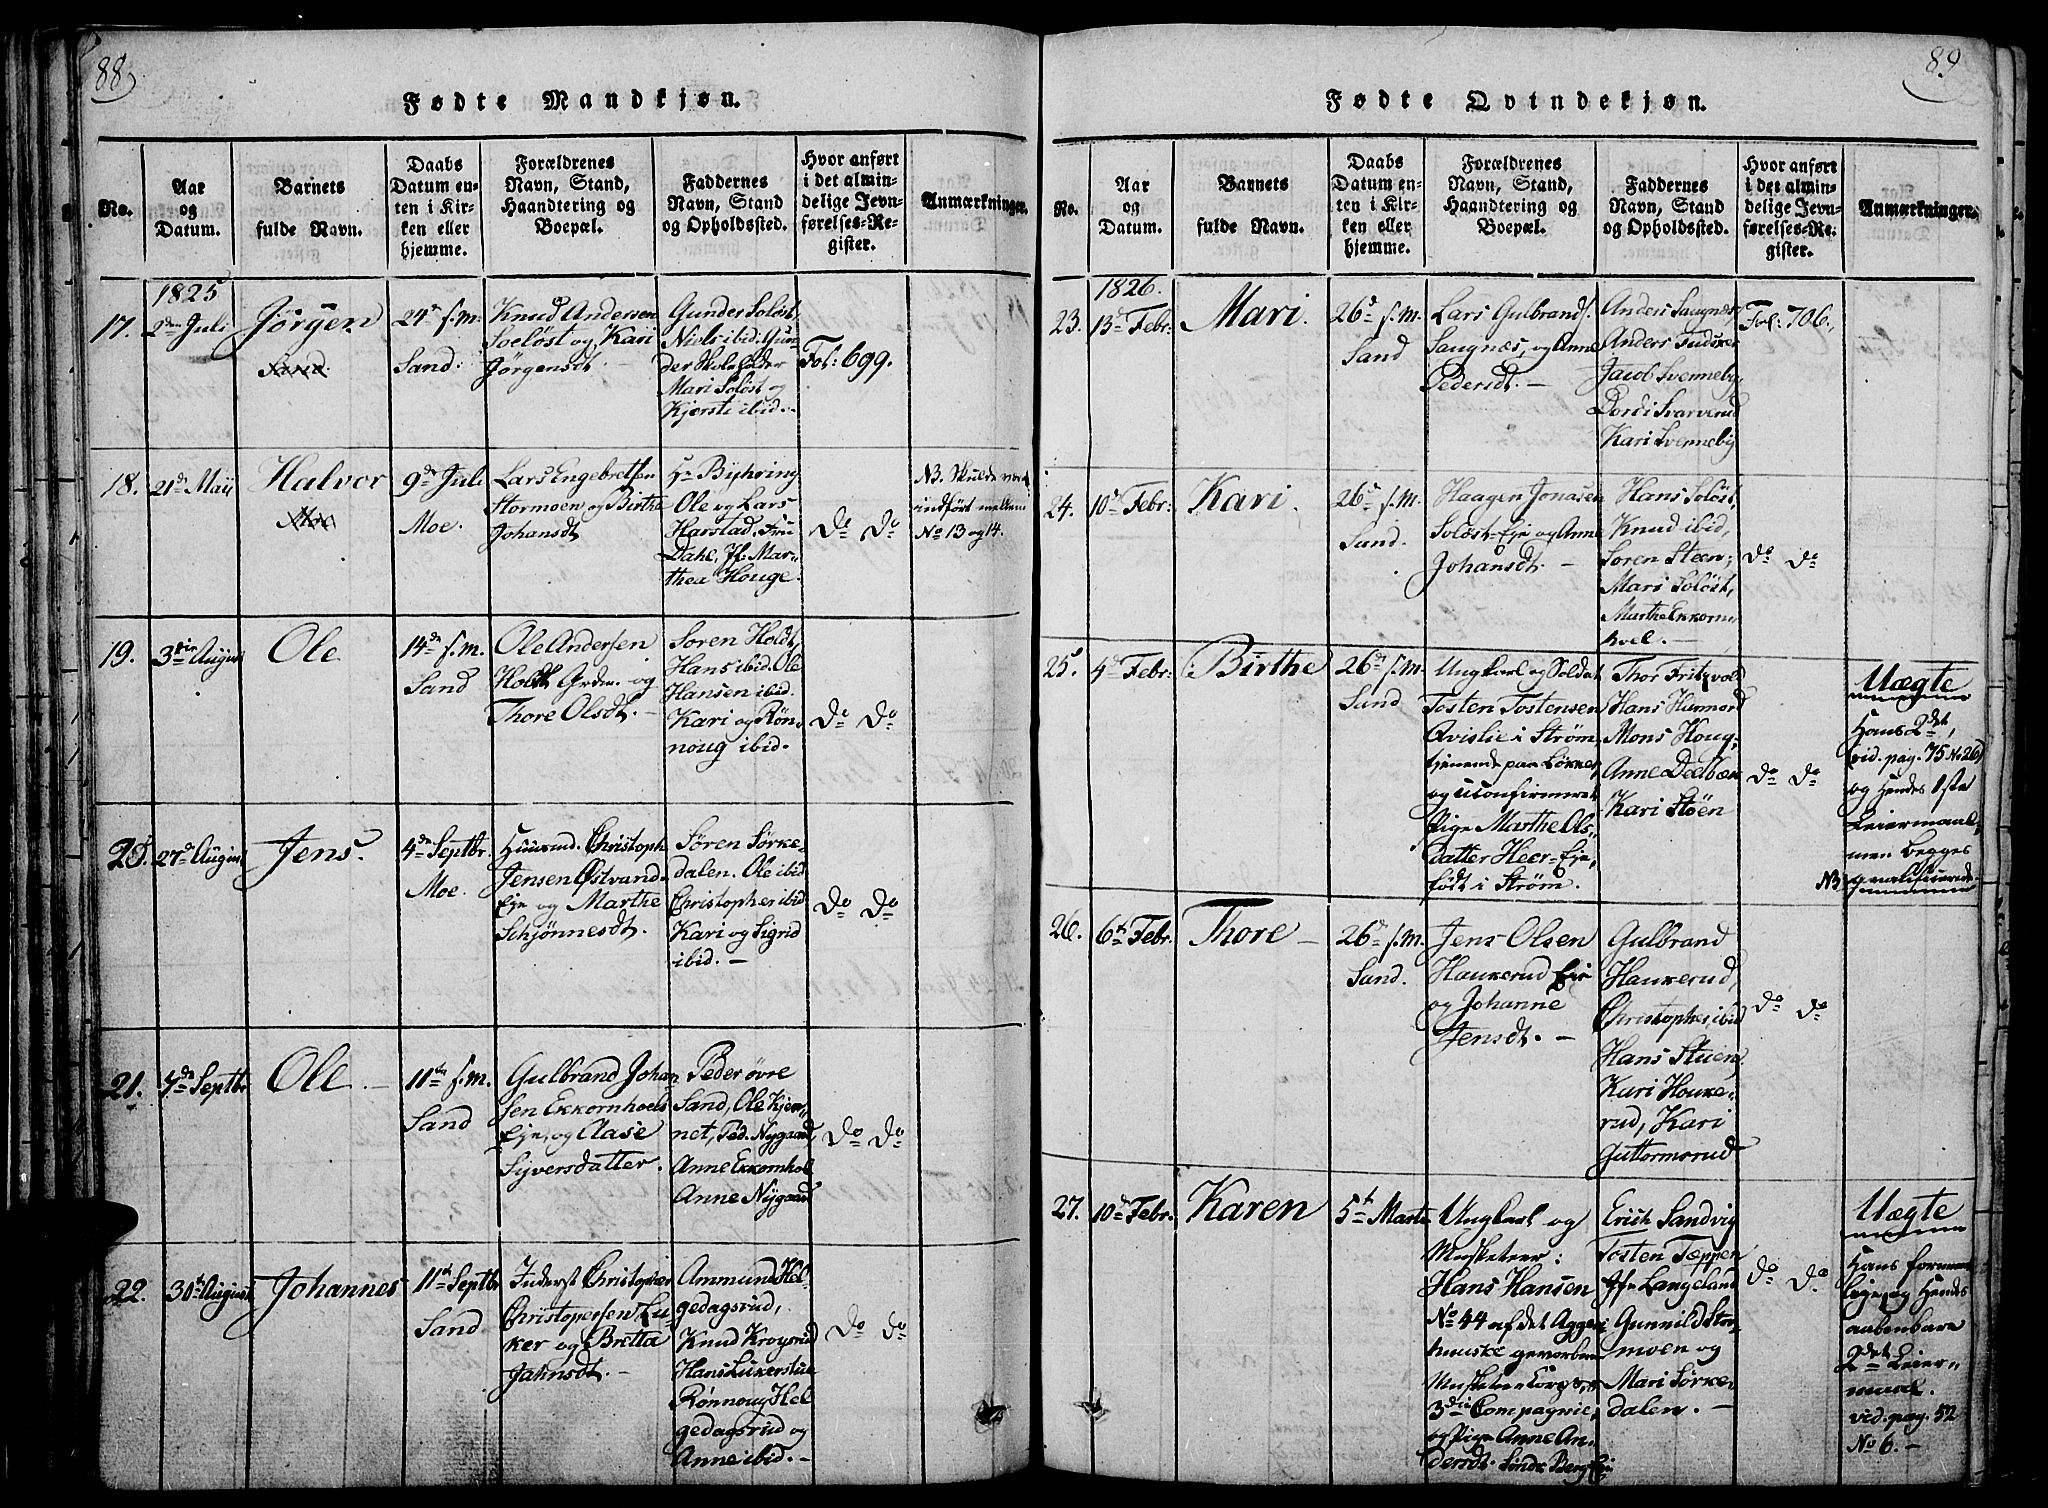 88
Fødte Mandkjøn.
No.
Aar
og
Datum.
Barnets
fulde Navn.
Daabs
Datum en-
ten i Kir-
ken eller
hjemme.
Forældrenes
Navn, Stand,
Haandtering og
Boepæl.
Faddernes
Navn, Stand
og Opholdssted.
Hvor anført
i det almin-
delige Jevn-
førelses-Re-
gister.
Anmærkninger.
17.
1825
2den Juli
Jørgen
Sand.
24de s.m.
Sand.
Knud Andersen
Soeløst og Kari
Jørgensdt. —
Gunder Soløst,
Niels ibid. Gun-
der Skoleholder
Mari Soløst og
Kjersti ibid.
Fol: 699.
18.
21de Maji
Halvor
Moe
9de Juli
Moe.
Lars Engebretsen
Stormoen og Birthe
Johansdt
Hr Byhring
Ole og Lars
Harstad, Fru
Dahl, Jf. Mar-
thea Houge.
Do Do
NB. Skulde været
indført mellem
No 13 og 14.
19.
3die August
Ole
14de s.m.
Sand
Ole Andersen
Holdt Grdm. og
Thore Olsdt. —
Soren Holdt,
Hans ibid. Ole
Hansen ibid.
Kari og Røn-
noug ibid.
Do Do
20.
27de August
Jens.
4de Septbr.
Moe.
Huusmd. Christoph
Jensen Østvand-
Eje og Marthe
Schjønnesdt.
Søren Sørke-
dalen. Ole ibid
Christopher ibid
Kari og Sigrid
ibid. —
Do Do
21.
7de Septbr
Ole —
11te s.m.
Sand
Gulbrand Johan
sen Ekkornhoels
Eje, og Aase
Syversdatter.
Peder øvre
Sand, Ole Kjer-
net, Ped. Nygaard,
Anne Ekkornhol
Anne Nygaard
Do Do
22.
30te August
Johannes
11te Septbr
Sand
Inderst Christopher
Christophersen Lu-
ker og Britta
Jahnsdt. —
Ammund Hel-
gedagsrud,
Knud Krogsrud
Hans Lukerstue
Rønnoug Hel
gedagsrud og
Anne ibid. —
Do do
89
Fødte Qvindekjøn.
No.
Aar
og
Datum.
Barnets
fulde Navn.
Daabs
Datum en-
ten i Kir-
ken eller
hjemme.
Forældrenes
Navn, Stand,
Haandtering og
Boepæl.
Faddernes
Navn, Stand
og Opholdssted.
Hvor anført
i det almin-
delige Jevn-
førelses-Re-
gister.
Anmærkninger.
23.
1826.
13de Febr:
Mari.
26de s.m.
Sand
Lars Gulbrands.
Saugnæs, og Anne
Pedersdt. —
Anders Saugnæs,
Anders Judsker
Jacob Svenneby,
Dordi Svarverud
Kari Svenneby
Fol: 706.
24.
10de Febr:
Kari.
26de s.m.
Sand.
Haagen Jonasen
Soløst-Eje og Anne
Johansdt. —
Hans Soløst,
Knud ibid,
Soren Steen;
Mari Soløst,
Marthe Ekkorn-
hoel. —
Do Do
25.
4de Febr:
Birthe
26de s.m.
Sand
Ungkarl og Soldat
Tosten Tostensen
Qvislie i Strøm,
tjenende paa Løkker,
og uconfirmeret
Pige Marthe Ols-
datter Heer-Eje,
født i Strøm.
Thor Fritzvold
Hans Hammord
Mons Houg,
Anne Dælbæk
Kari Støen
Do Do
Uægte
Hans 2det,
(vid. pag. 75 No 26)
og Hendes 1ste
Leiermaal,
men begges
NB
26.
6te Febr.
Thore —
26de s.m.
Sand.
Jens Olsen
Haukerud Eje
og Johanne
Jensdt. —
Gulbrand
Haukerud,
Christopher ibid
Hans Stuen,
Kari Houke-
rud, Kari
Guttormsrud
Do Do
27.
10de Febr:
Karen
5te Marts
Ungkarl og
Musketeer:
Hans Hansen
No 44 af det Agger-
huuske gevorbne
Musketeer Corps,
3die Compagnie,
og Pige Anne An-
dersdt. Søndr Berg Eje
Erich Sandvig
Tosten Tæppen
Jfr Langeland
Gunnild Stor-
moen og
Mari Sørke-
dalen. —
Do Do
Uægte
Hans foremme
lige og Hendes
aabenbare
2det Leier-
maal.
vid. pag. 52
No 6. —